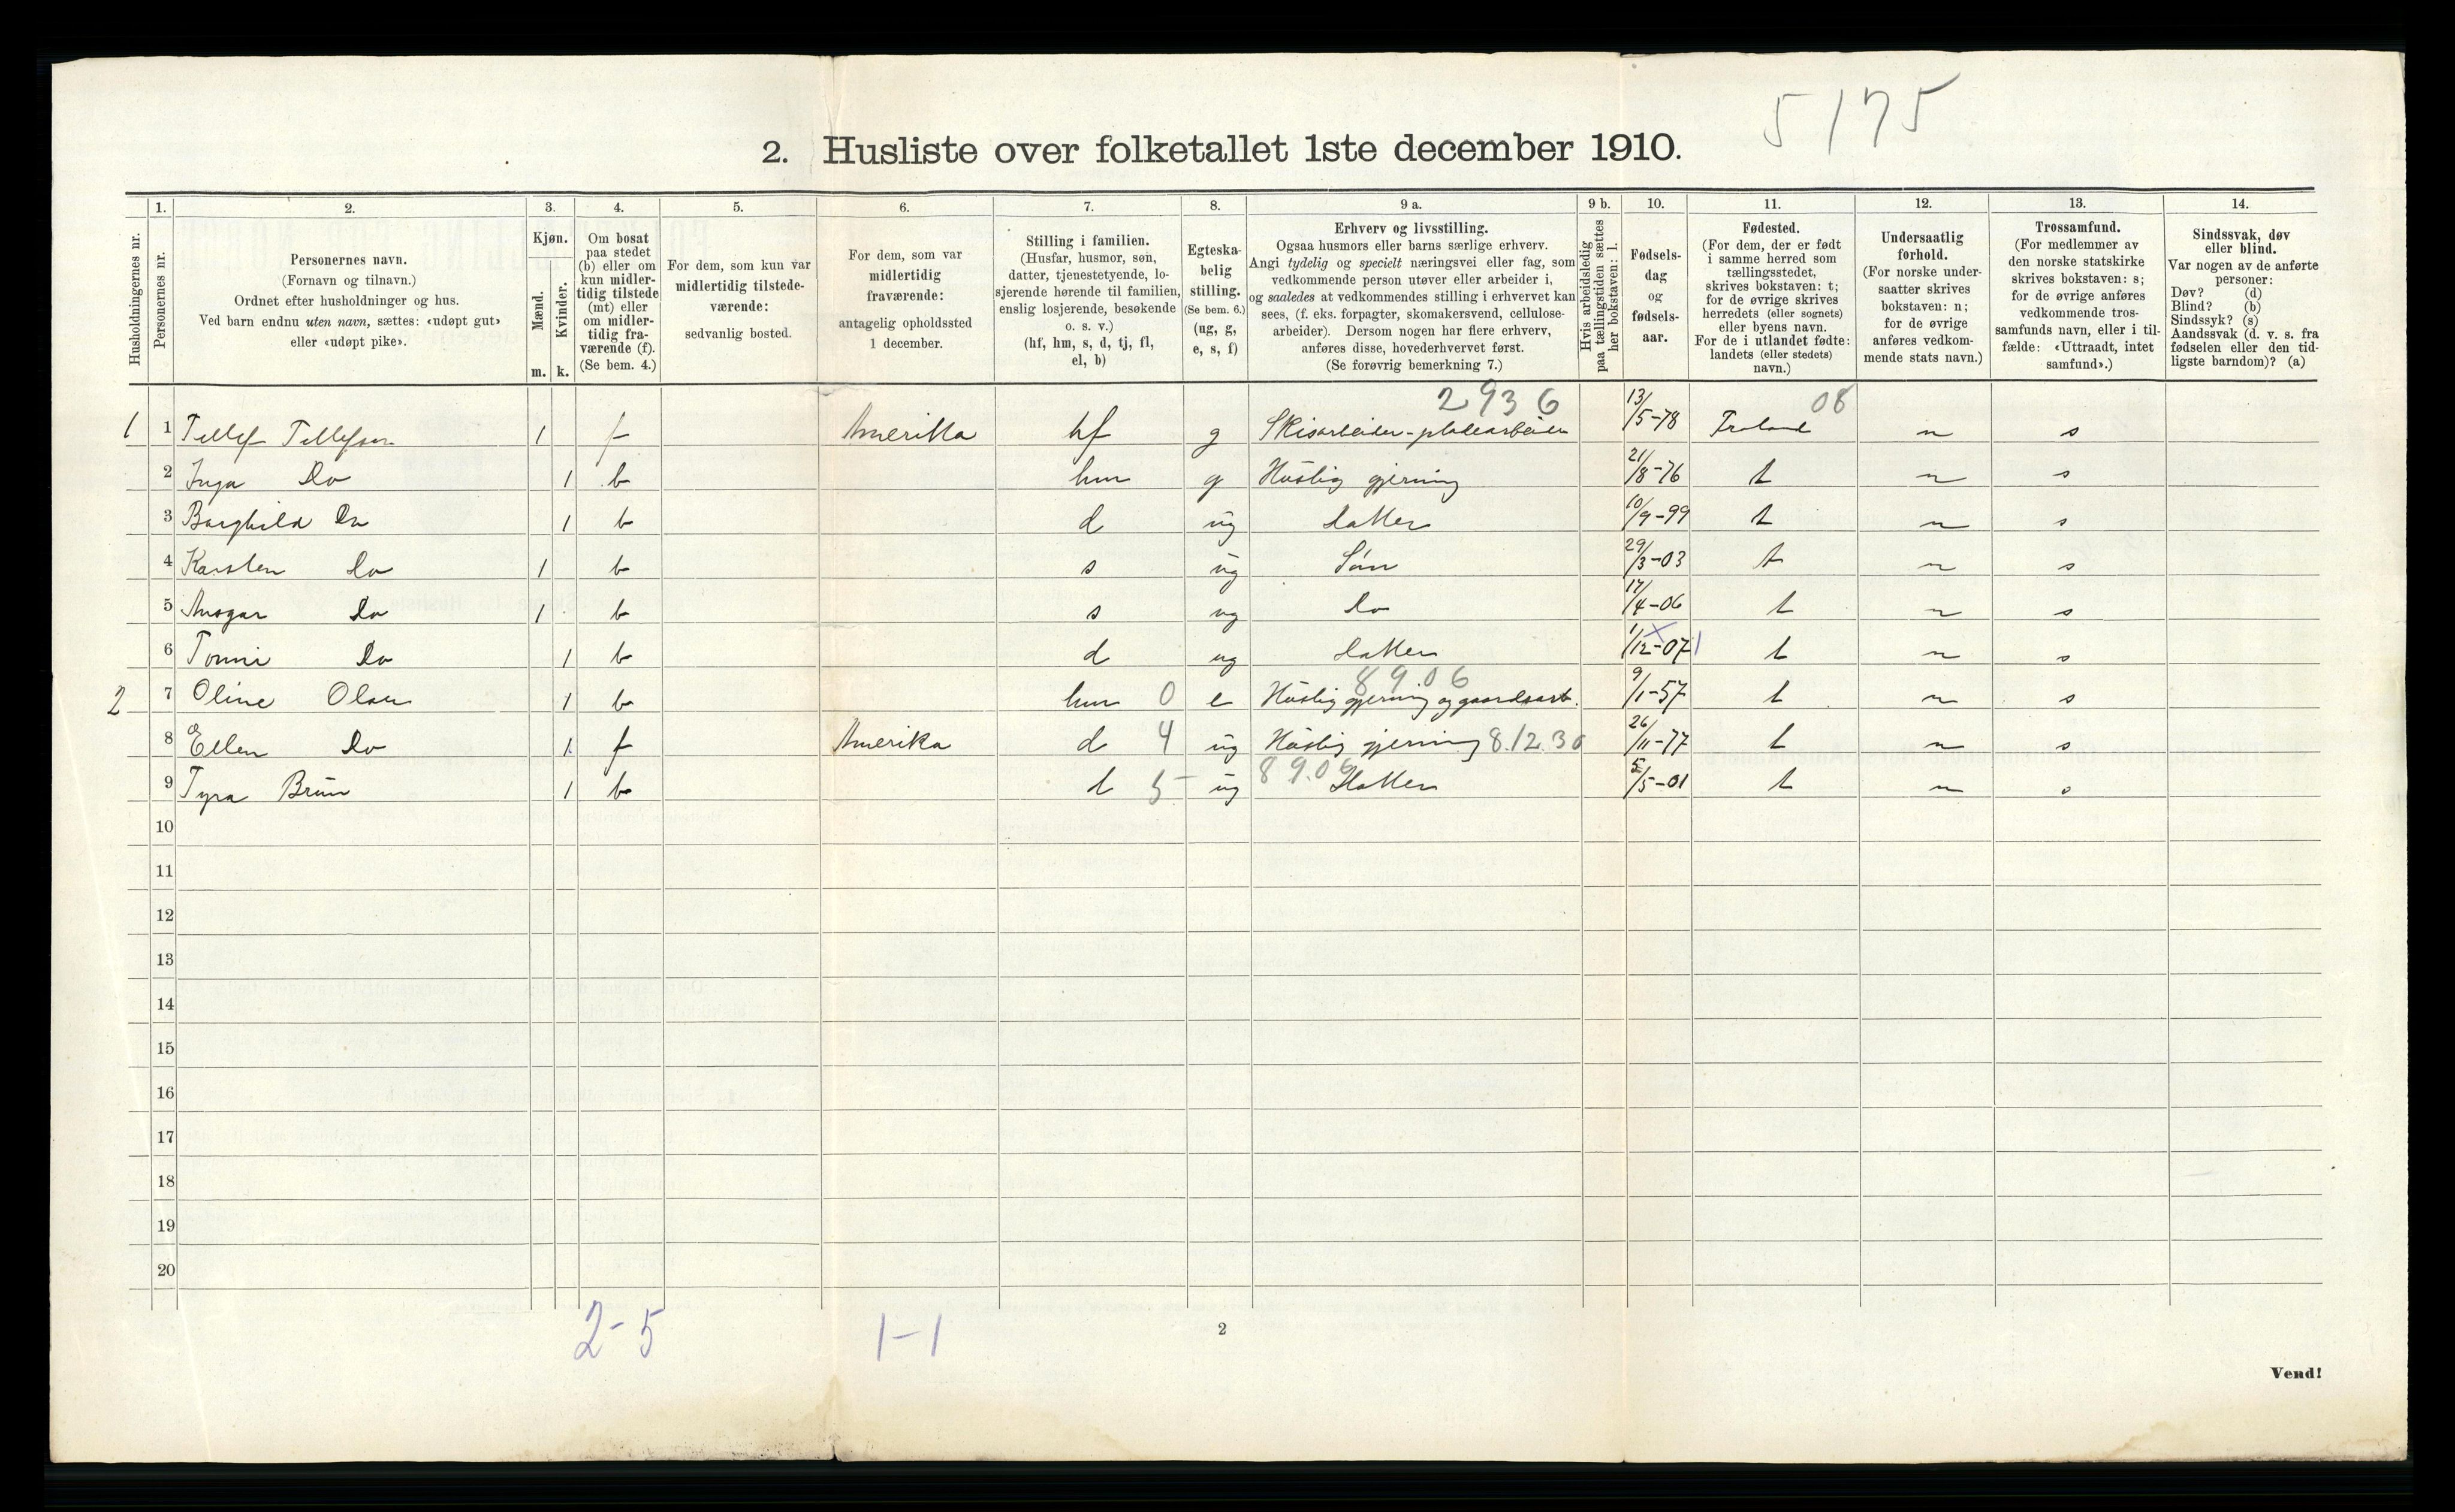 5175
2. Husliste over folketallet 1ste december 1910.
Husholdningernes nr.
1.
Personernes nr.
2.
Personernes navn.
(Fornavn og tilnavn.)
Ordnet efter husholdninger og hus.
Ved barn endnu uten navn, sættes: «udøpt gut»
eller «udøpt pike».
3.
Kjøn.
Mænd.
Kvinder.
m. k.
4.
Om bosat
paa stedet
(b) eller om
kun midler-
tidig tilstede
(mt) eller
om midler-
tidig fra-
værende (f).
(Se bem. 4.)
5.
For dem, som kun var
midlertidig tilstede-
værende:
sedvanlig bosted.
6.
For dem, som var
midlertidig
fraværende:
antagelig opholdssted
1 december.
7.
Stilling i familien.
(Husfar, husmor, søn,
datter, tjenestetyende, lo-
sjerende hørende til familien,
enslig losjerende, besøkende
o. s. v.)
(hf, hm, s, d, tj, fl,
el, b)
8.
Egteska-
belig
stilling.
(Se bem. 6.)
(ug, g,
e, s, f)
9 a.
Erhverv og livsstilling.
Ogsaa husmors eller barns særlige erhverv.
Angi tydelig og specielt næringsvei eller fag, som
vedkommende person utøver eller arbeider i,
og saaledes at vedkommendes stilling i erhvervet kan
sees, (f. eks. forpagter, skomakersvend, cellulose-
arbeider). Dersom nogen har flere erhverv,
anføres disse, hovederhvervet først.
(Se forøvrig bemerkning 7.)
9 b.
Hvis arbeidsledig
paa tællingstiden sættes
her bokstaven: l.
10.
Fødsels-
dag
og
fødsels-
aar.
11.
Fødested.
(For dem, der er født
i samme herred som
tællingsstedet,
skrives bokstaven: t;
for de øvrige skrives
herredets (eller sognets)
eller byens navn.
For de i utlandet fødte:
landets (eller stedets)
navn.)
12.
Undersaatlig
forhold.
(For norske under-
saatter skrives
bokstaven: n;
for de øvrige
anføres vedkom-
mende stats navn.)
13.
Trossamfund.
(For medlemmer av
den norske statskirke
skrives bokstaven: s;
for de øvrige anføres
vedkommende tros-
samfunds navn, eller i til-
fælde: «Uttraadt, intet
samfund».)
14.
Sindssvak, døv
eller blind.
Var nogen av de anførte
personer:
Døv? (d)
Blind? (b)
Sindssyk? (s)
Aandssvak (d. v. s. fra
fødselen eller den tid-
ligste barndom)? (a)
2936 08
1 1 Tellef Tellefsen 1 f Amerika hf g Skisarbeider-pladearbeider 13/5-78 Froland n s
2 Inga Do 1 b hm g Huslig gjerning 21/8-76 t n s
3 Borghild Do 1 b d ug Datter 10/9-99 t n s
4 Karsten Do 1 b s ug Søn 29/3-03 t n s
5 Ansgar Do 1 b s ug Do 17/4-06 t n s
6 Tonni Do 1 b d ug Datter 1/12-07 t n s
8906
2 7 Oline Olsen 1 b hm 0 e Huslig gjerning og gaardsarb. 9/1-57 t n s
8 Ellen Do 1 f Amerika d 4 ug Huslig gjerning 8.12.30 26/11-77 t n s
8 9.06
9 Tyra Brun 1 b d 5 ug Datter 5/5-01 t n s
10
11
12
13
14
15
16
17
18
19
20
2-5 1-1
2
Vend!